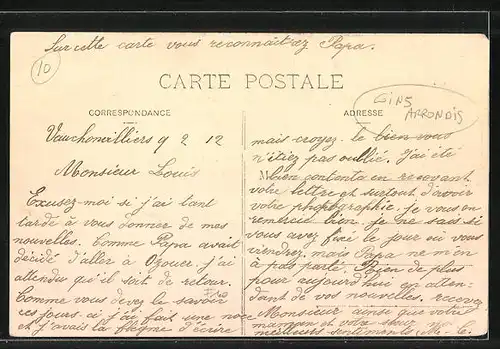 Sur cette carte vous reconnaîtrez Papa.
10
CARTE POSTALE
CORRESPONDANCE
ADRESSE
GINS
ARRONDIS
Vauchonvilliers 9 2 12
Monsieur Louis
Excusez-moi si j'ai tant
tardé à vous donner de mes
nouvelles. Comme Papa avait
décidé d'aller à Ozouer, j'ai
attendu qu'il soit de retour.
Comme vous devez le savoir
ces jours ci j'ai fait une noce
et j'avais la flegme d'écrire
mais croyez le bien vous
n'étiez pas oublié. J'ai été
bien contente en recevant
votre lettre et surtout d'avoir
votre photographie. je vous en
remercie bien. je ne sais si
vous avez fixé le jour où vous
viendrez, mais Papa ne m'en
à pas parlé. Rien de plus
pour aujourd'hui en atten-
dant de vos nouvelles. recevez
Monsieur ainsi que votre
maman et votre sœur
meilleurs sentiments